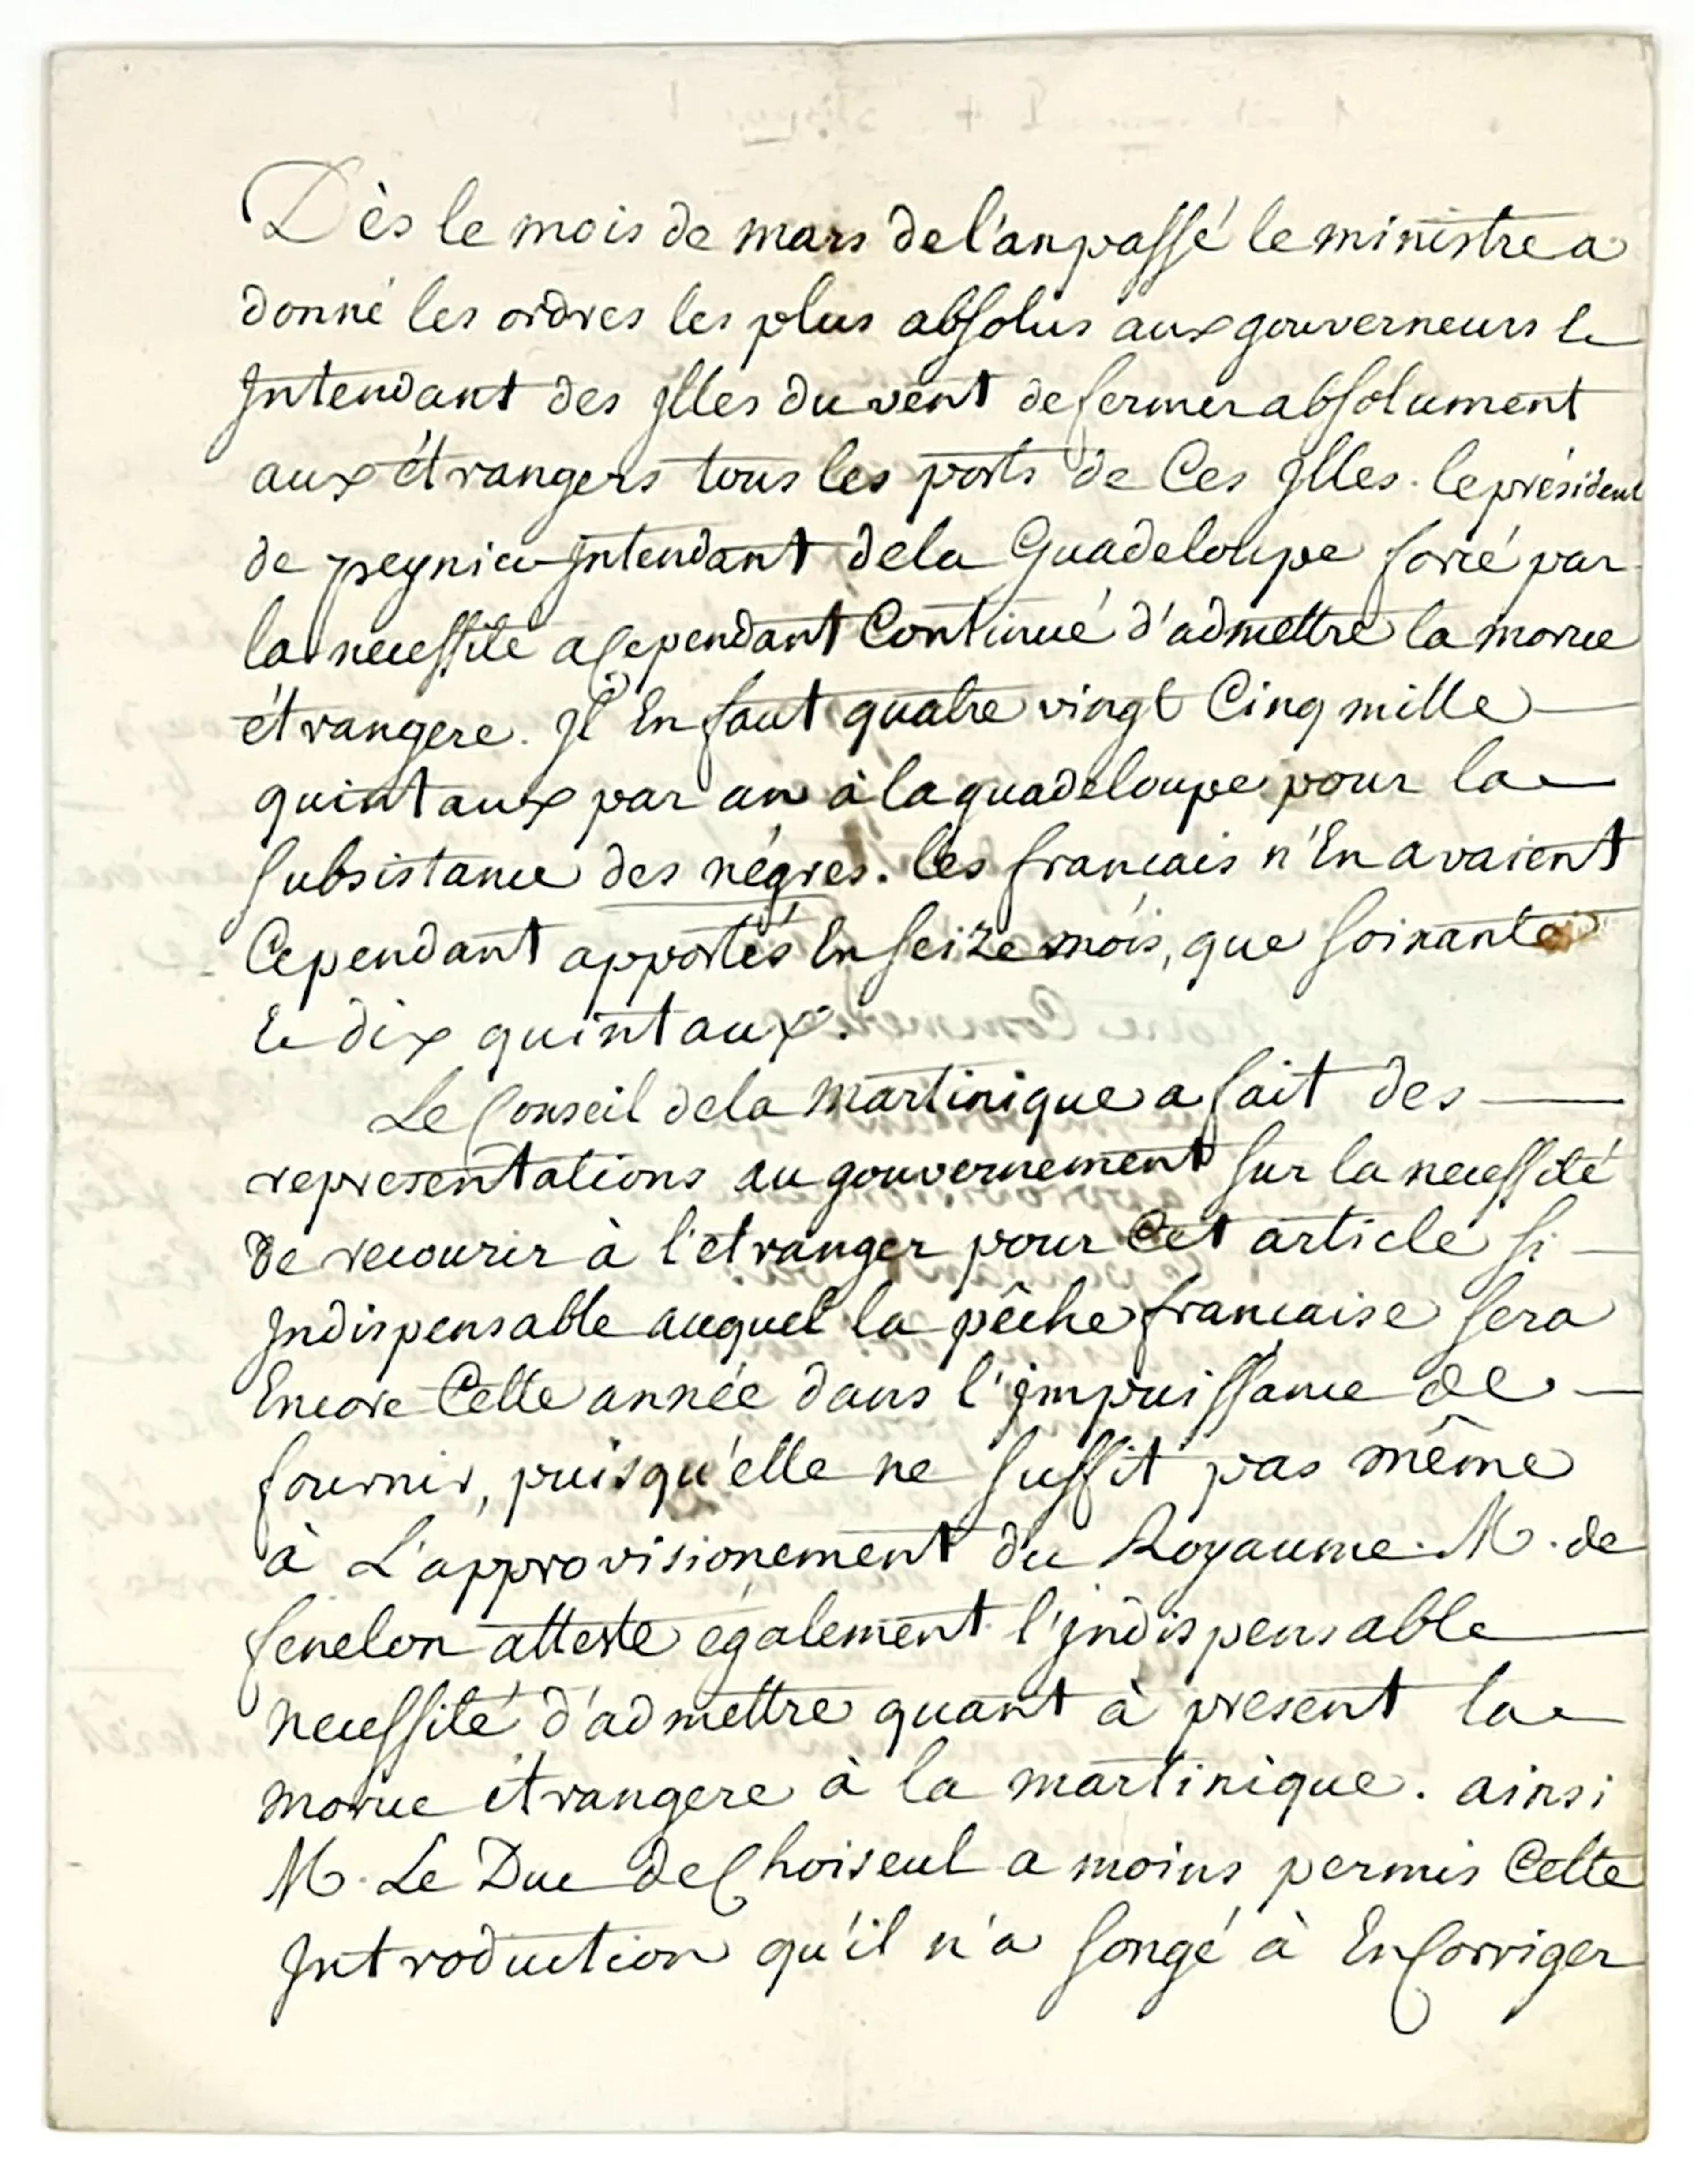 Dès le mois de mars de l'an passé le ministre a
donné les ordres les plus absolus aux gouverneurs et
Intendant des Isles du vent de fermer absolument
aux étrangers tous les ports de Ces Isles. le président
de peynier Intendant de la Guadeloupe forcé par
la necessite a Cependant Continué d'admettre la morue
étrangere. Il En faut quatre vingt Cinq mille
quintaux par an à la guadeloupe pour la
subsistance des négres. les francais n'En avaient
Cependant apportés En seize mois, que soixante
et dix quintaux.
Le Conseil de la Martinique a fait des
representations au gouvernement sur la necessité
De recourir à l'etranger pour Cet article si
Indispensable auquel la pêche francaise sera
Encore Cette année dans l'impuissance de
fournir, puisqu'elle ne suffit pas même
à L'approvisionement du Royaume. M. de
fenelon atteste également l'indispensable
necessité d'admettre quant à present la
morue étrangere à la martinique. ainsi
M. Le Duc de Choiseul a moins permis Cette
Introduction qu'il n'a songé à En Corriger